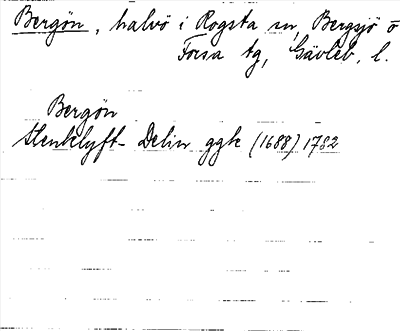 Bergön, halvö i Rogsta sn, Bergsjö o
Forsa tg, Gävleb. l.
Bergön
Stenklyft- Delin ggk (1688) 1782